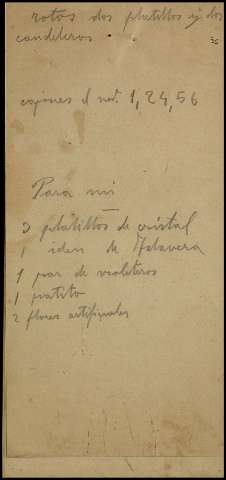 rotos dos platillos y dos
candeleros
36
cajones el nº 1, 24, 56
Para mi
3 platillos de cristal
1 idem de Talavera
1 par de violeteros
1 patito
2 flores artificiales